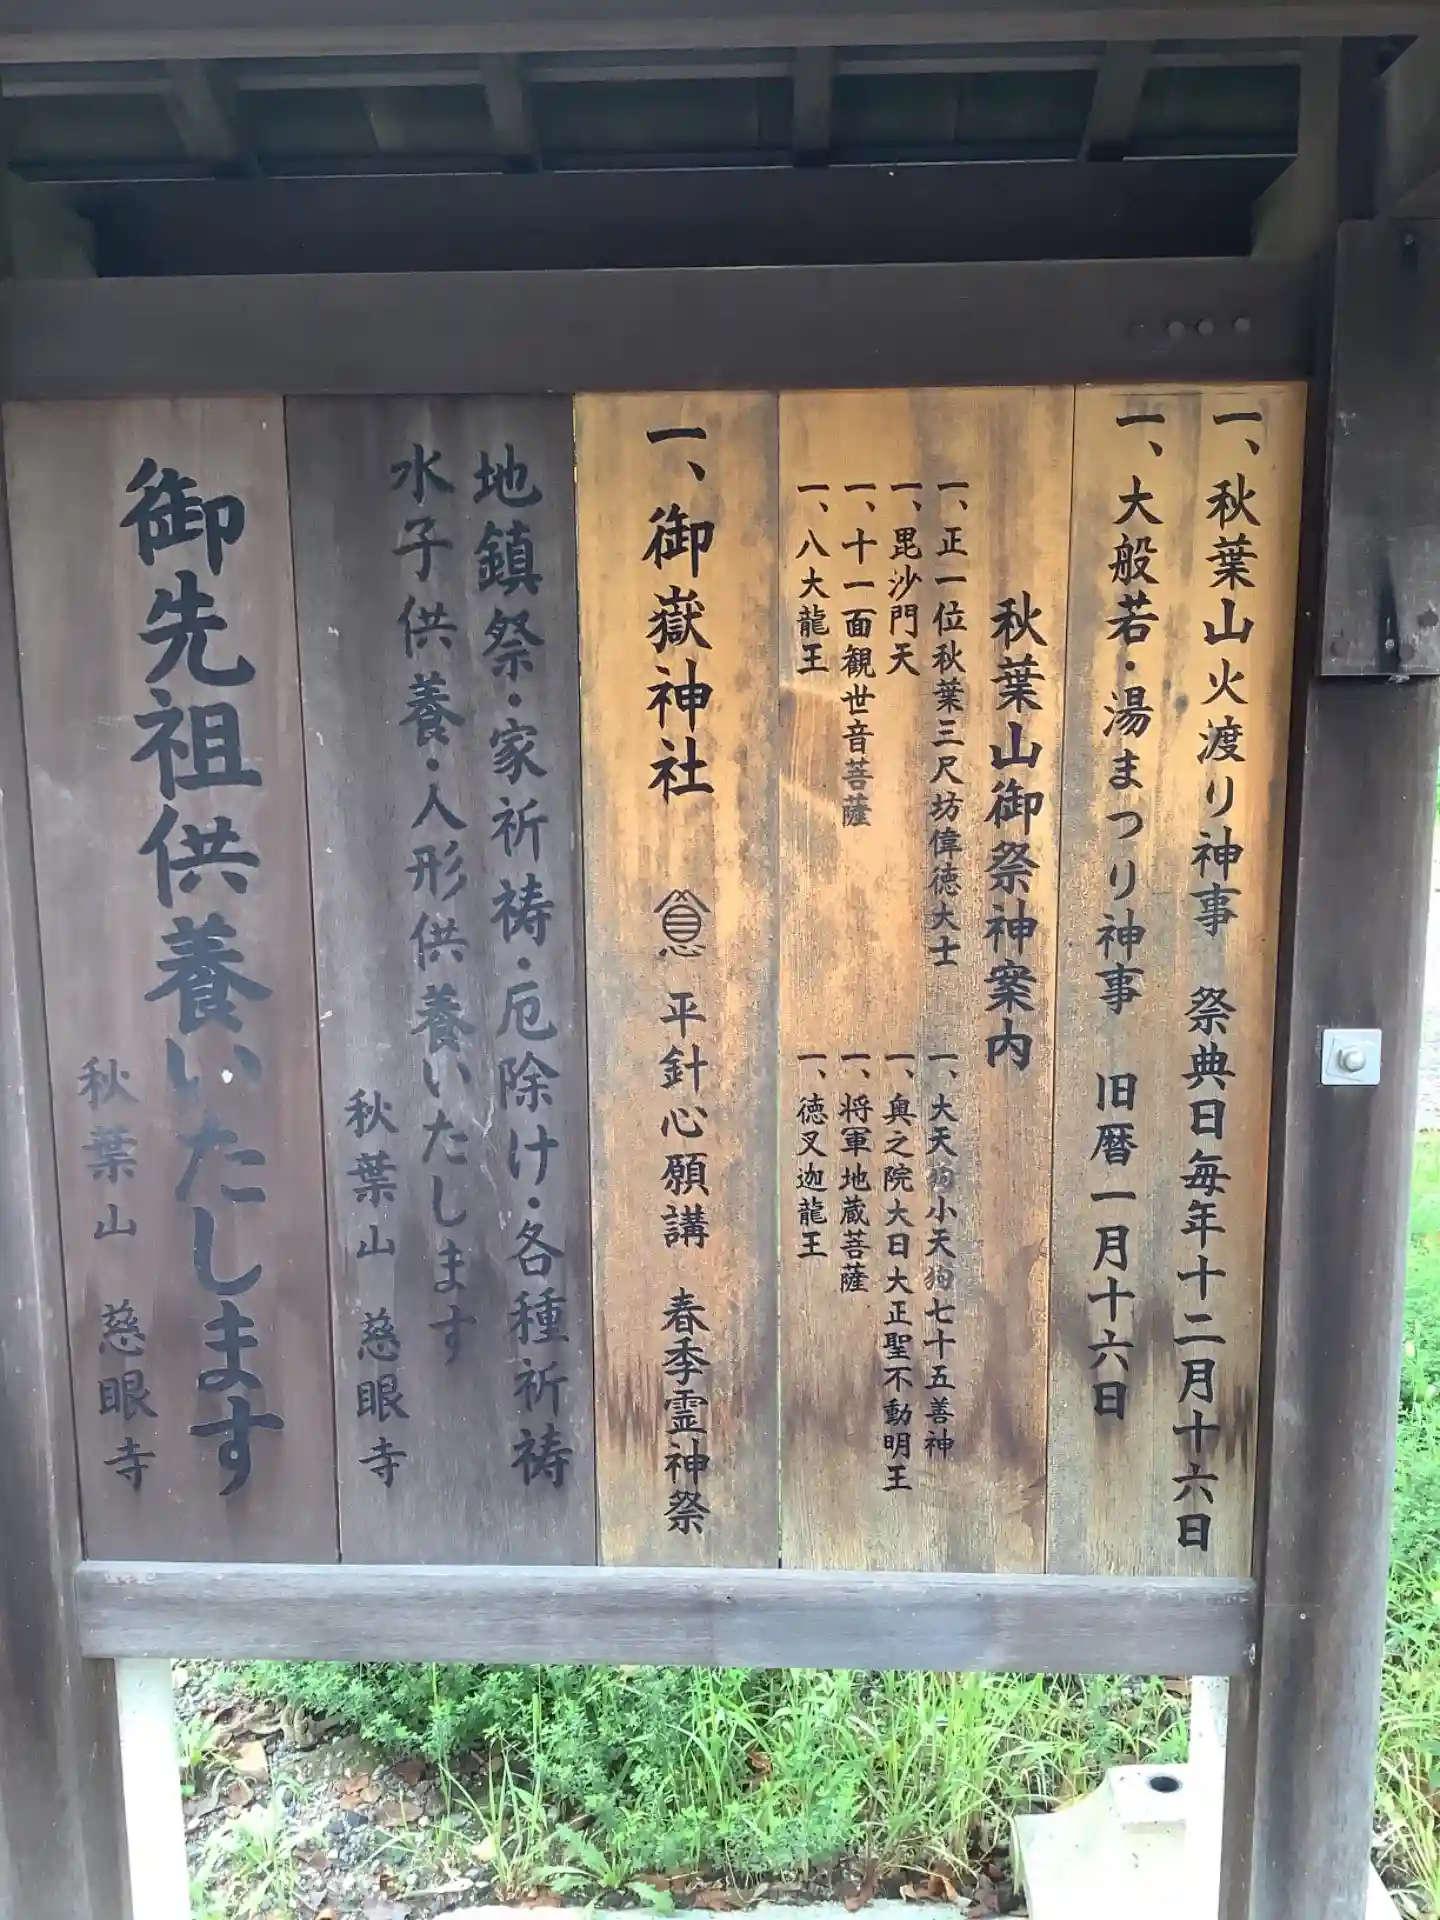 一、秋葉山火渡り神事　祭典日毎年十二月十六日
一、大般若・湯まつり神事　旧暦一月十六日
秋葉山御祭神案内
一、正一位秋葉三尺坊偉徳大士
一、毘沙門天
一、十一面観世音菩薩
一、八大龍王
一、大天狗小天狗七十五善神
一、奥之院大日大正聖不動明王
一、将軍地蔵菩薩
一、徳叉迦龍王
一、御嶽神社　平針心願講　春季霊神祭
地鎮祭・家祈祷・厄除け・各種祈祷
水子供養・人形供養いたします
秋葉山　慈眼寺
御先祖供養いたします
秋葉山　慈眼寺